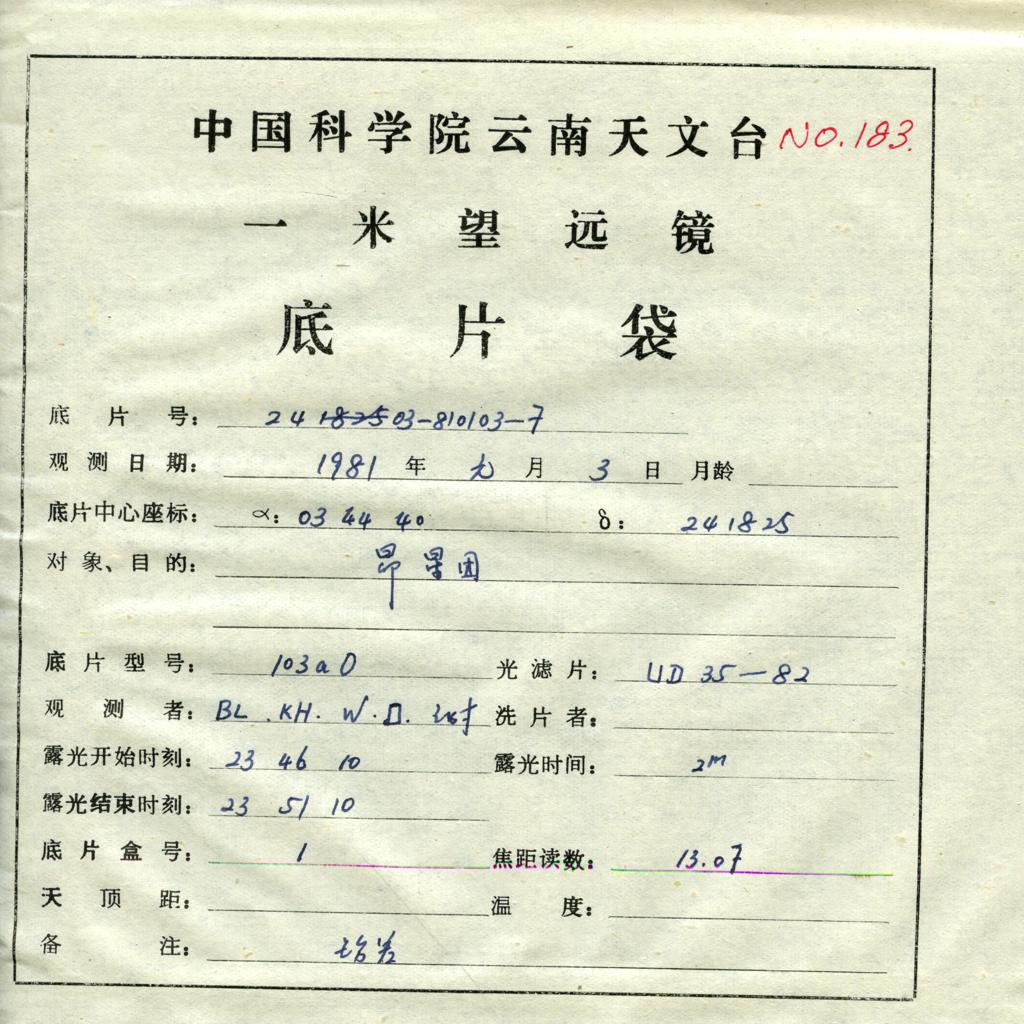 中国科学院云南天文台 NO.183.
一米望远镜
底片袋
底片号: 24 1825 03-810103-7
观测日期: 1981 年 元 月 3 日 月龄
底片中心座标: α: 03 44 40 δ: 24 18 25
对象、目的: 昴星团
底片型号: 103aO 光滤片: UD 35-82
观测者: BL. KH. W. 洗片者:
露光开始时刻: 23 46 10 露光时间: 2m
露光结束时刻: 23 51 10
底片盒号: 1 焦距读数: 13.07
天顶距: 温度:
备注: